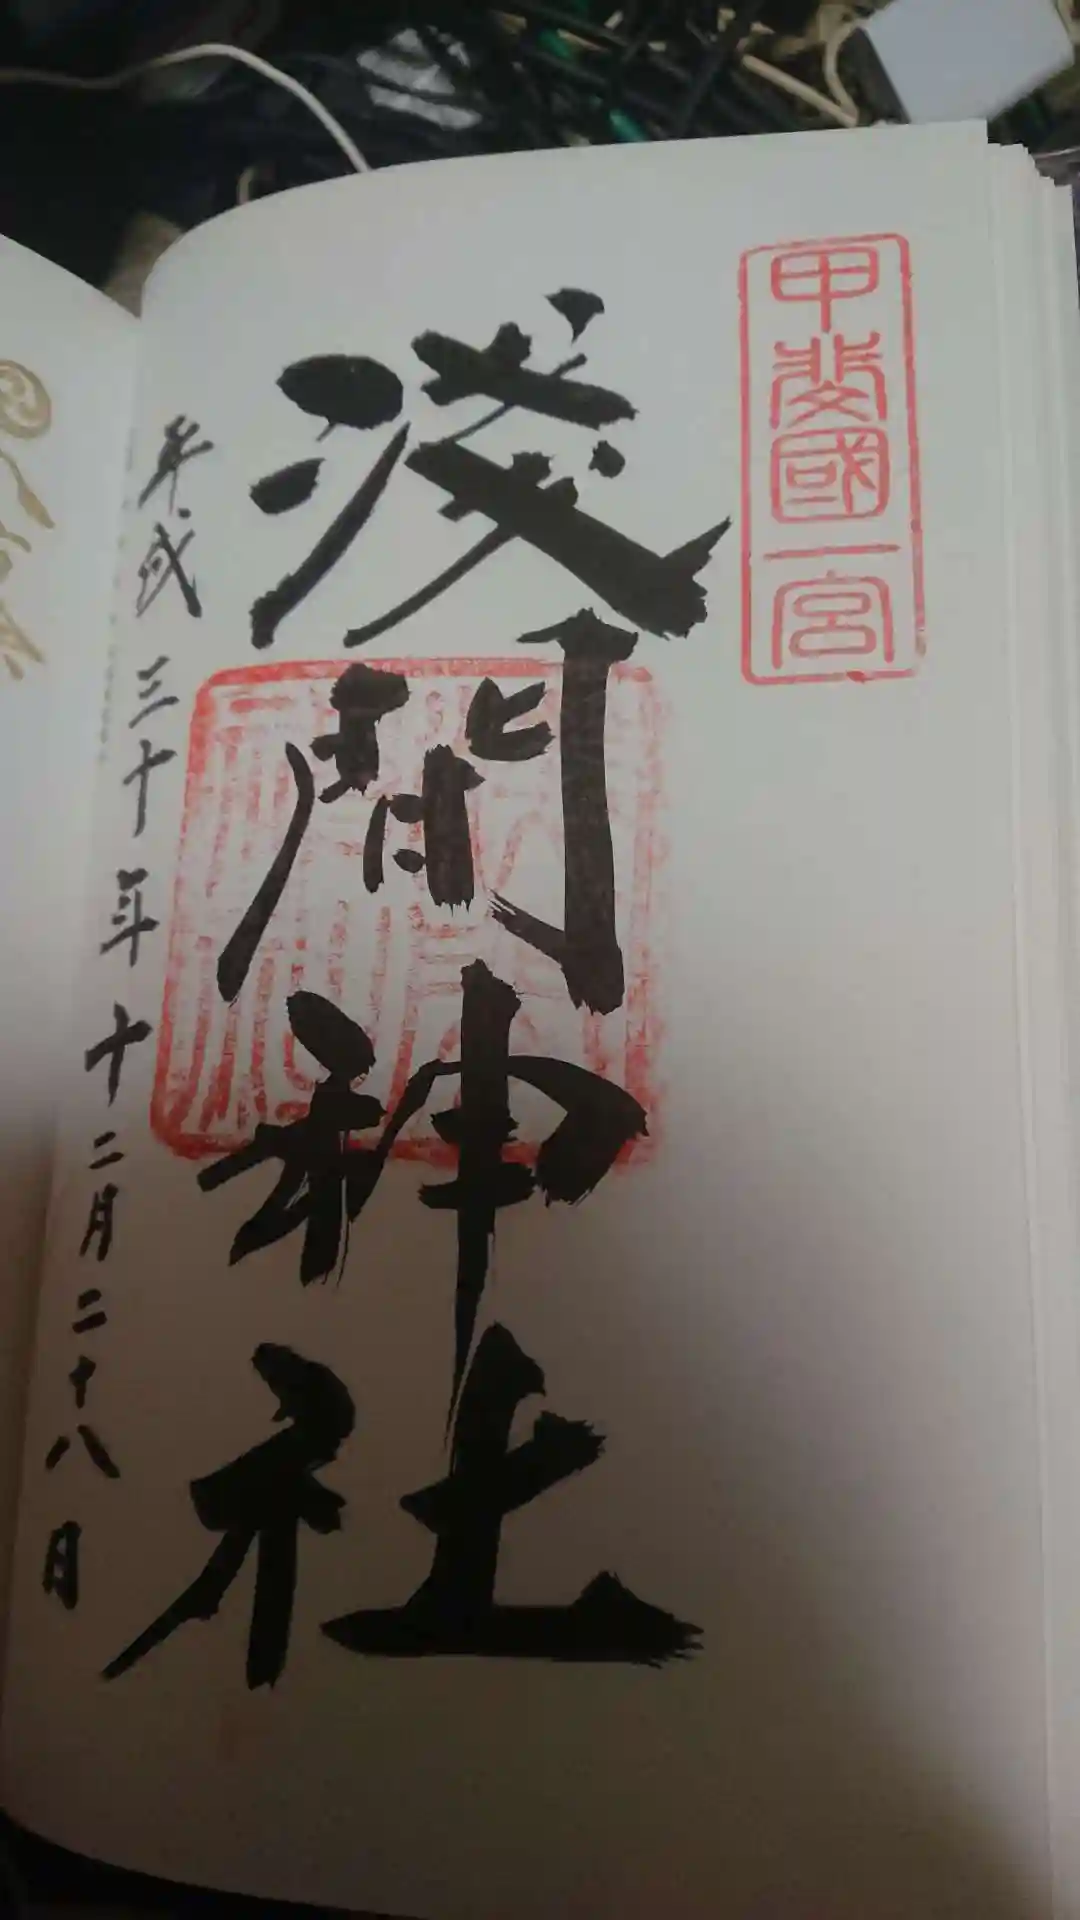 甲斐國一宮
浅間神社
平成三十年十二月二十八日